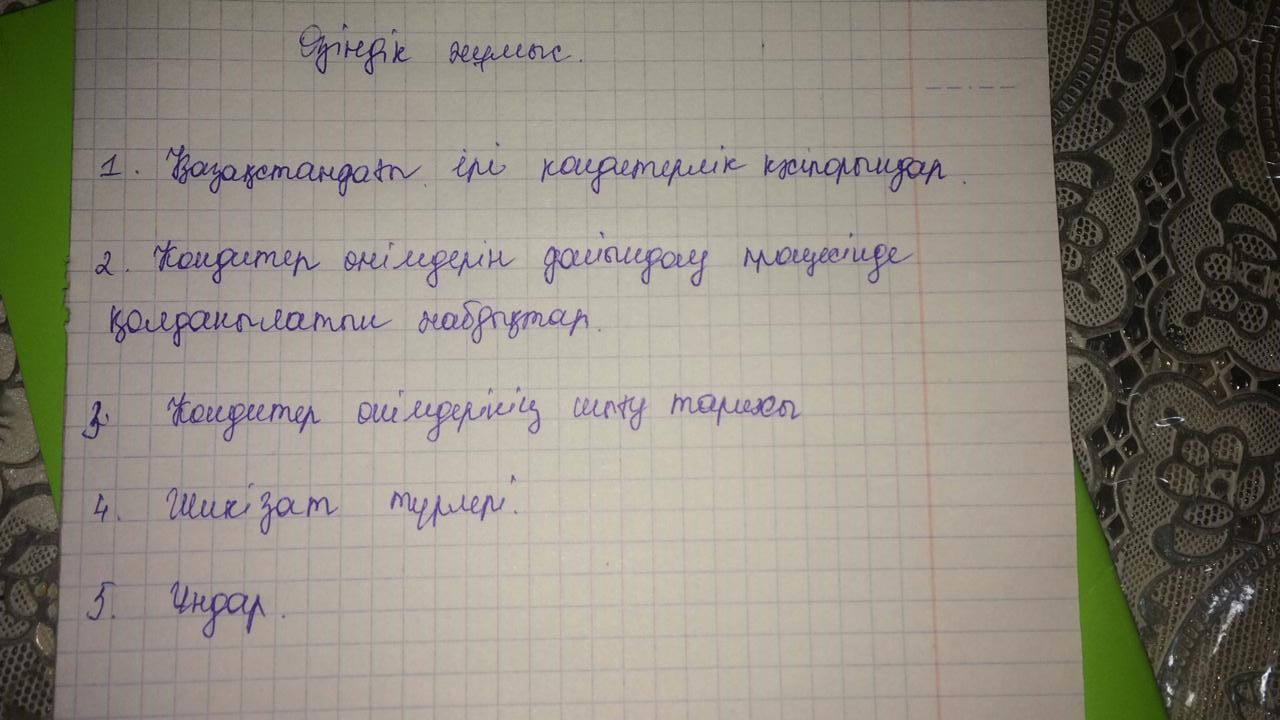 Өзіндік жұмыс.
1. Қазақстандағы ірі кондитерлік кәсіпорындар.
2. Кондитер өнімдерін дайындау процесінде
қолданылатын жабдықтар.
3. Кондитер өнімдерінің шығу тарихы
4. Шикізат түрлері.
5. Ұндар.